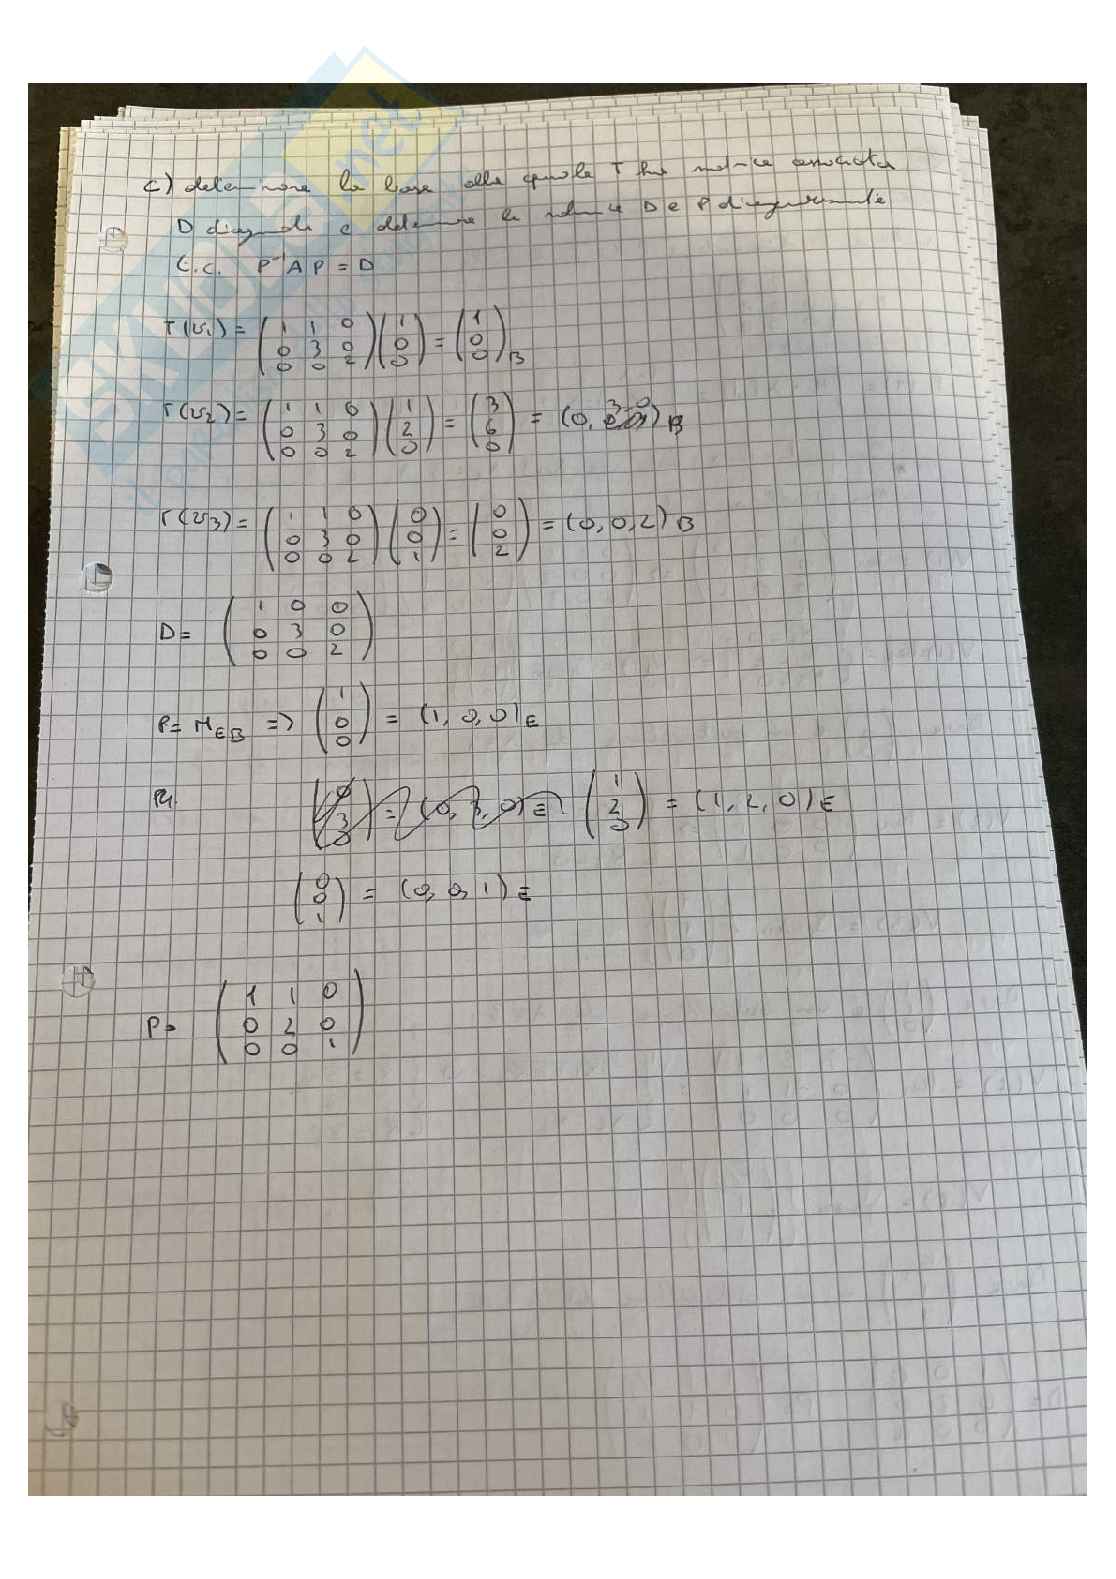 c) determinare la base alla quale T ha matrice associata
D diagonale e determinare le matrice D e P diagonalizzante
t.c. P⁻¹AP = D
T(v₁) = (1 1 0; 0 3 0; 0 0 2) (1; 0; 0) = (1; 0; 0)B
T(v₂) = (1 1 0; 0 3 0; 0 0 2) (1; 2; 0) = (3; 6; 0) = (0, 3, 0)B
T(v₃) = (1 1 0; 0 3 0; 0 0 2) (0; 0; 1) = (0; 0; 2) = (0, 0, 2)B
D = (1 0 0; 0 3 0; 0 0 2)
P = M_EB => (1; 0; 0) = (1, 0, 0)E
(0; 3; 0) = (0, 3, 0)E (1; 2; 0) = (1, 2, 0)E
(0; 0; 1) = (0, 0, 1)E
P = (1 1 0; 0 2 0; 0 0 1)
SKUOLA.net